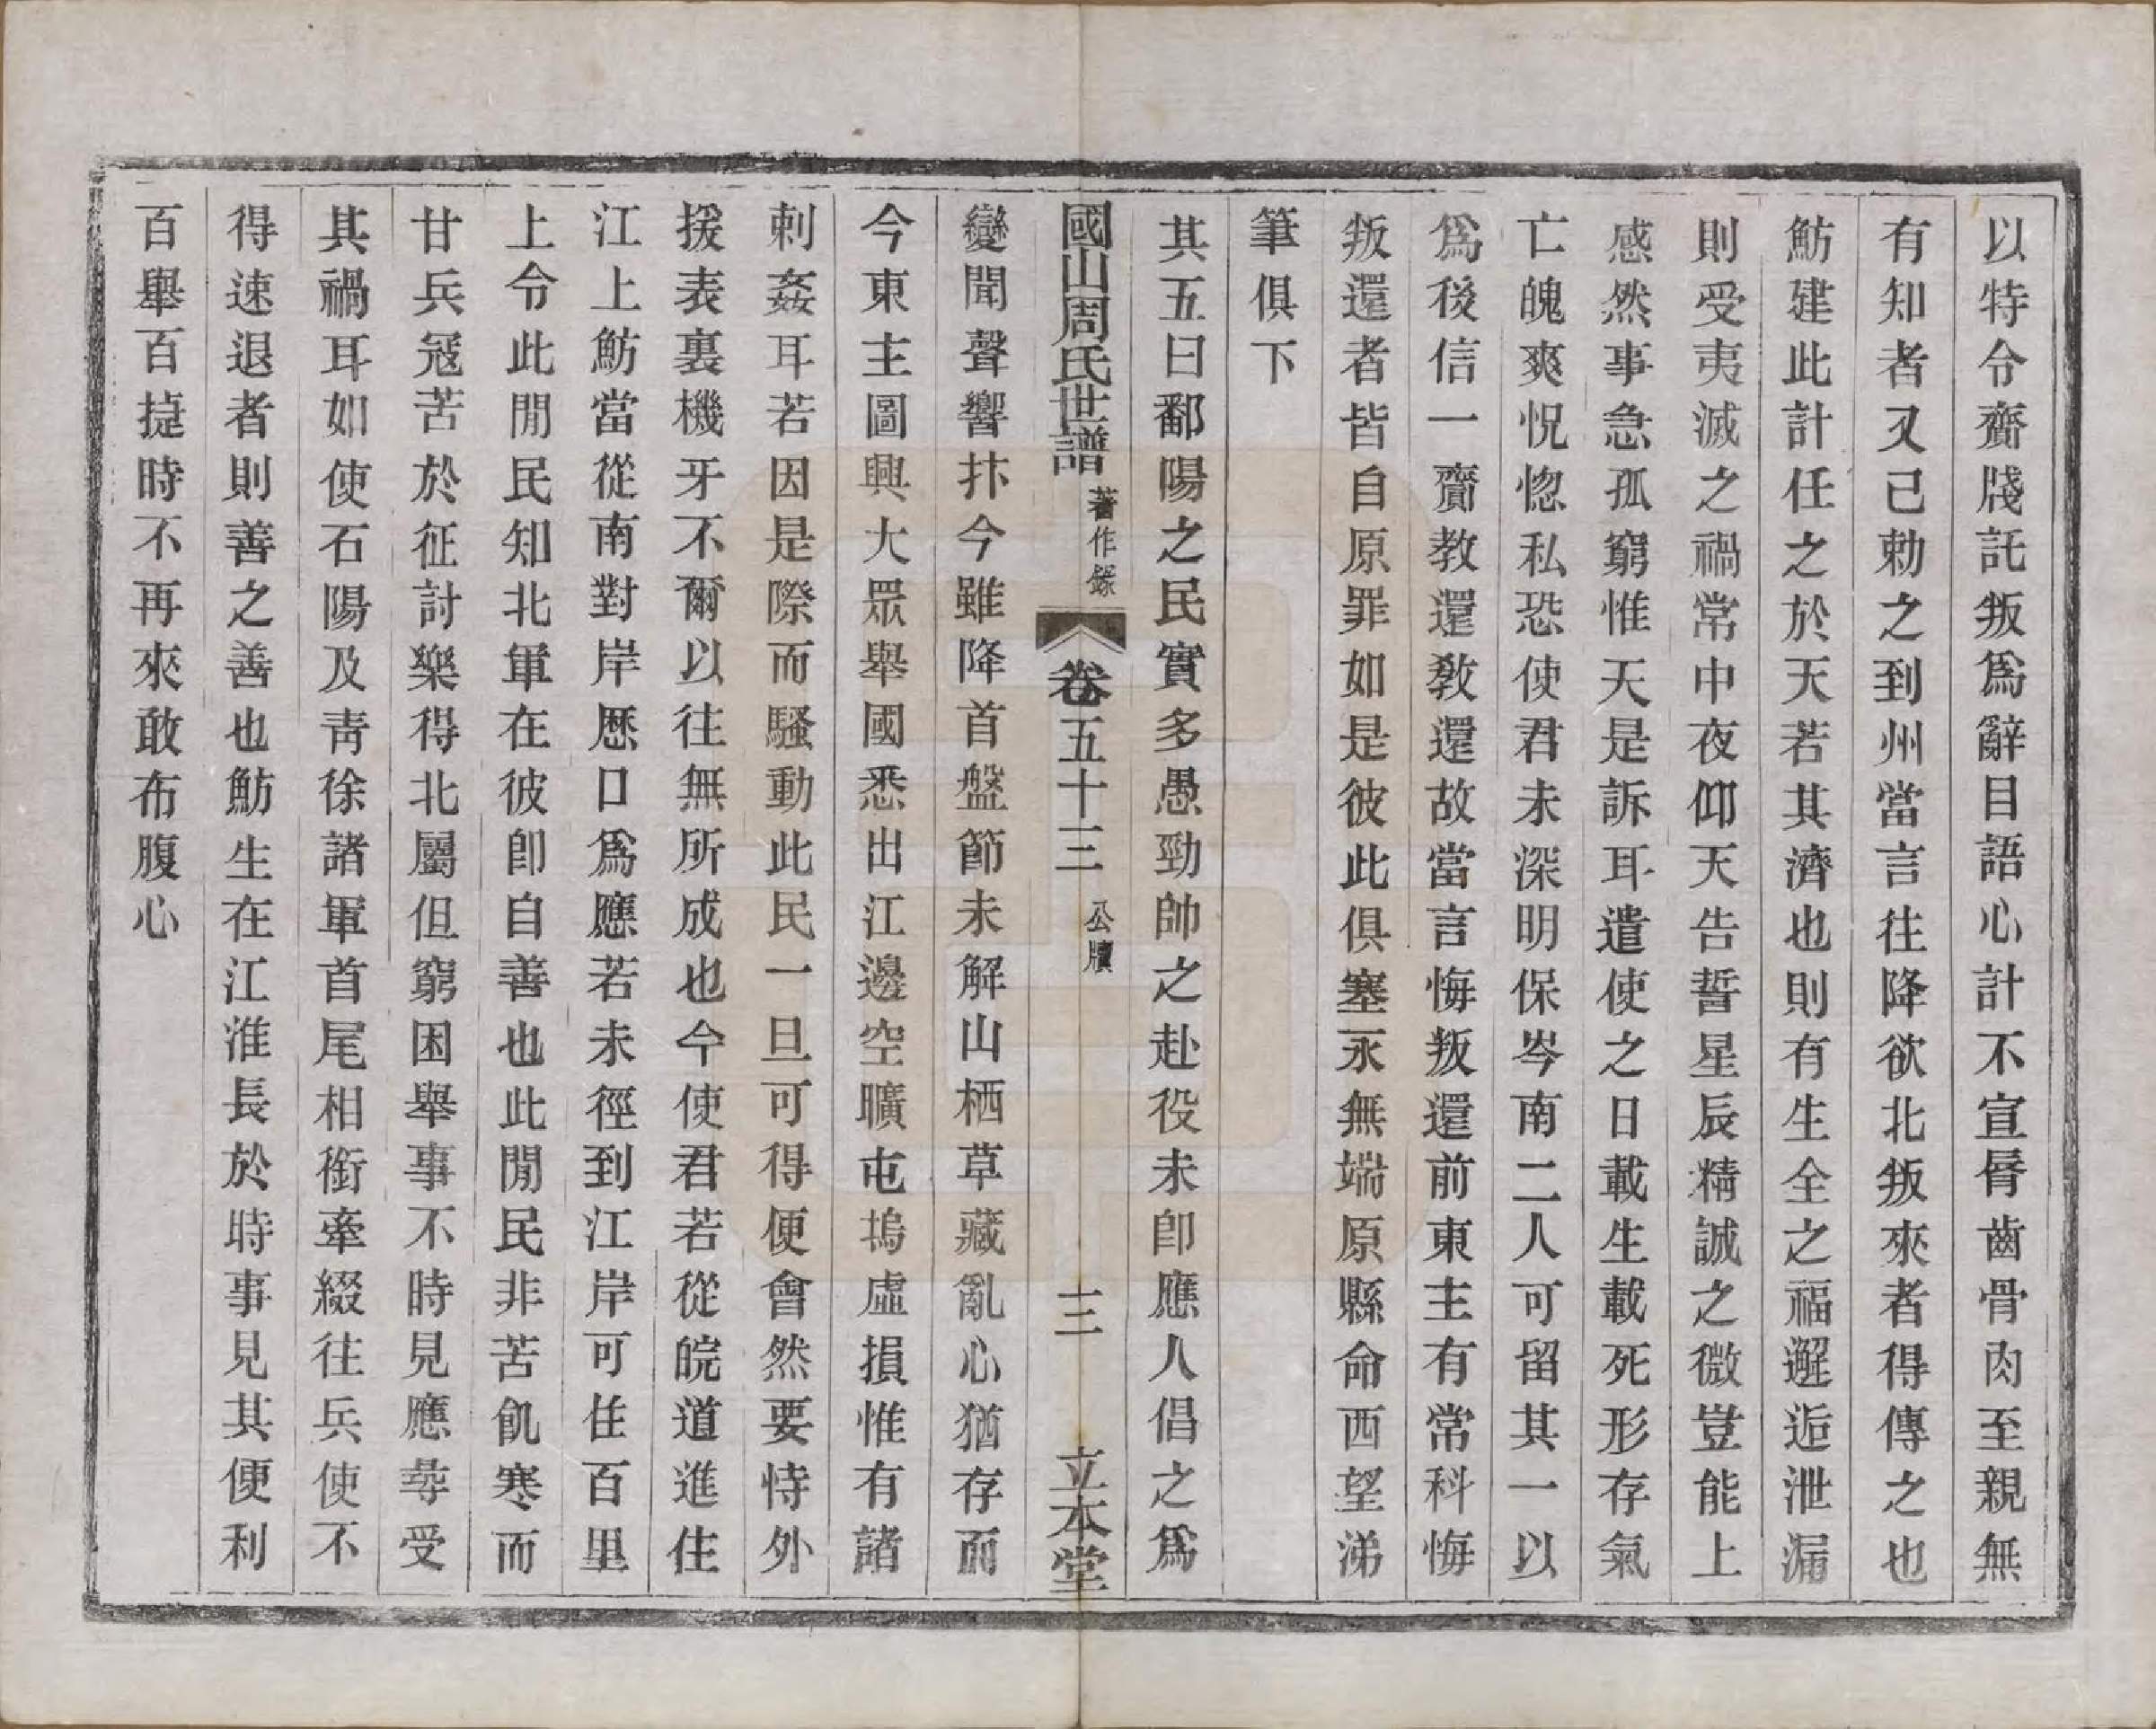 以特令齎牋託叛爲辭目語心計不宣脣齒骨肉至親無
有知者又已勅之到州當言往降欲北叛來者得傳之也
魴建此計任之於天若其濟也則有生全之福邂逅泄漏
則受夷滅之禍常中夜仰天告誓星辰精誠之微豈能上
感然事急孤窮惟天是訴耳遣使之日載生載死形存氣
亡魄爽怳惚私恐使君未深明保岑南二人可留其一以
爲後信一齎教還教還故當言悔叛還前東主有常科悔
叛還者皆自原罪如是彼此俱塞永無端原縣命西望涕
筆俱下
其五曰鄱陽之民實多愚勁帥之赴役未卽應人倡之爲
國山周氏世譜 著作錄 卷五十三 公牘 三 立本堂
變聞聲響抃今雖降首盤節未解山栖草藏亂心猶存而
今東主圖興大眾舉國悉出江邊空曠屯塢虛損惟有諸
刺姦耳若因是際而騷動此民一旦可得便會然要恃外
援表裏機牙不爾以往無所成也今使君若從皖道進住
江上魴當從南對岸歷口爲應若未徑到江岸可住百里
上令此閒民知北軍在彼卽自善也此閒民非苦飢寒而
甘兵寇苦於征討樂得北屬但窮困舉事不時見應尋受
其禍耳如使石陽及靑徐諸軍首尾相銜牽綴往兵使不
得速退者則善之善也魴生在江淮長於時事見其便利
百舉百捷時不再來敢布腹心